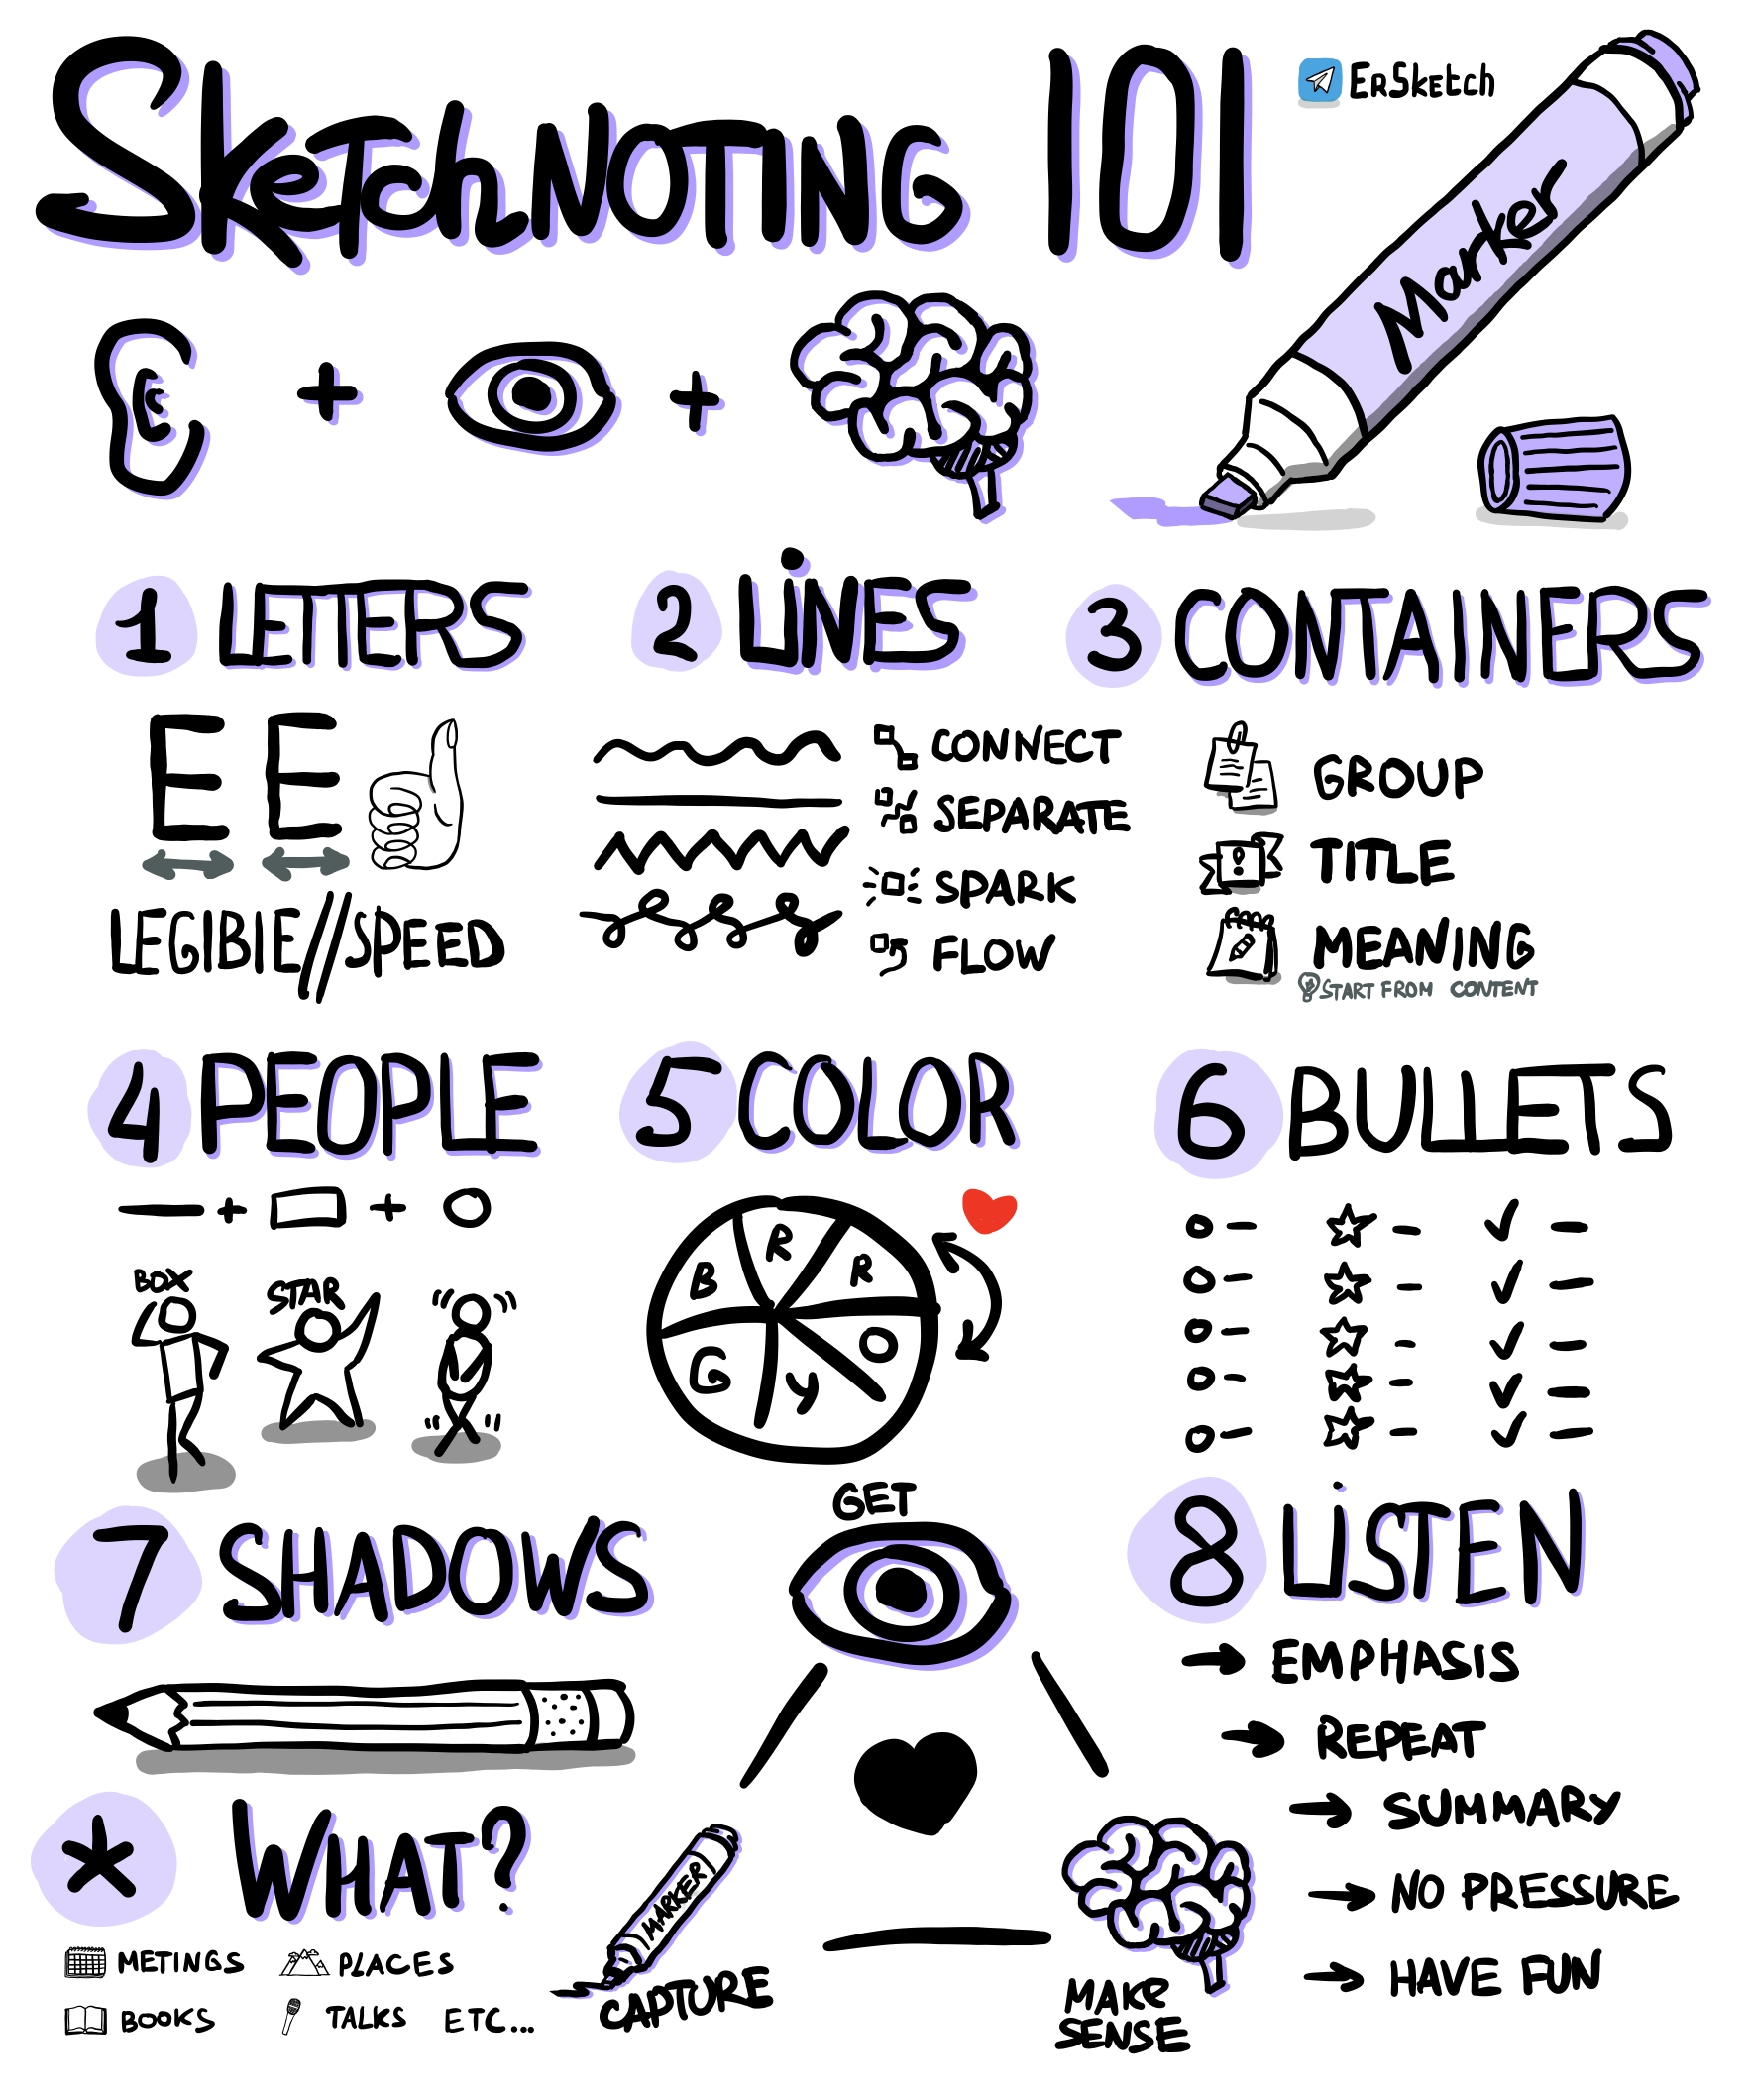 SKeTchNOTING 101
ErSketch
Marker
+ +
1 LETTERS
LEGIBIE//SPEED
2 LiNES
CONNECT
SEPARATE
SPARK
FLOW
3 CONTAINERS
GROUP
TITLE
MEANING
START FROM CONTENT
E E
4 PEOPLE
+ +
BOX
STAR
5 COLOR
B R R
G Y O
6 BULLETS
7 SHADOWS
GET
MARKER
CAPTURE
MAKe
SENSE
8 LiSTEN
EMPHASIS
REPEAT
SUMMARY
NO PRESSURE
HAVE FUN
* WHAT?
METINGS
PLACES
BOOKS
TALKS ETC...